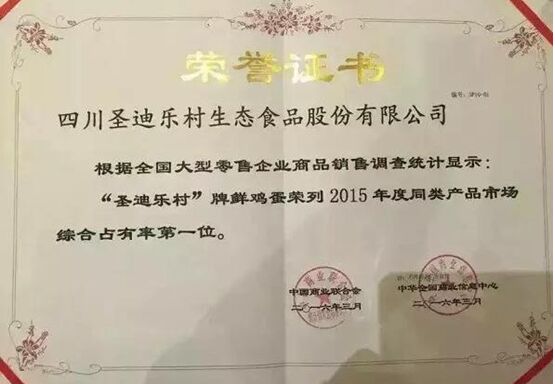 荣誉证书
编号：SP16-01
四川圣迪乐村生态食品股份有限公司
根据全国大型零售企业商品销售调查统计显示：
“圣迪乐村”牌鲜鸡蛋荣列 2015 年度同类产品市场
综合占有率第一位。
中国商业联合会
中华全国商业信息中心
二〇一六年三月
二〇一六年三月